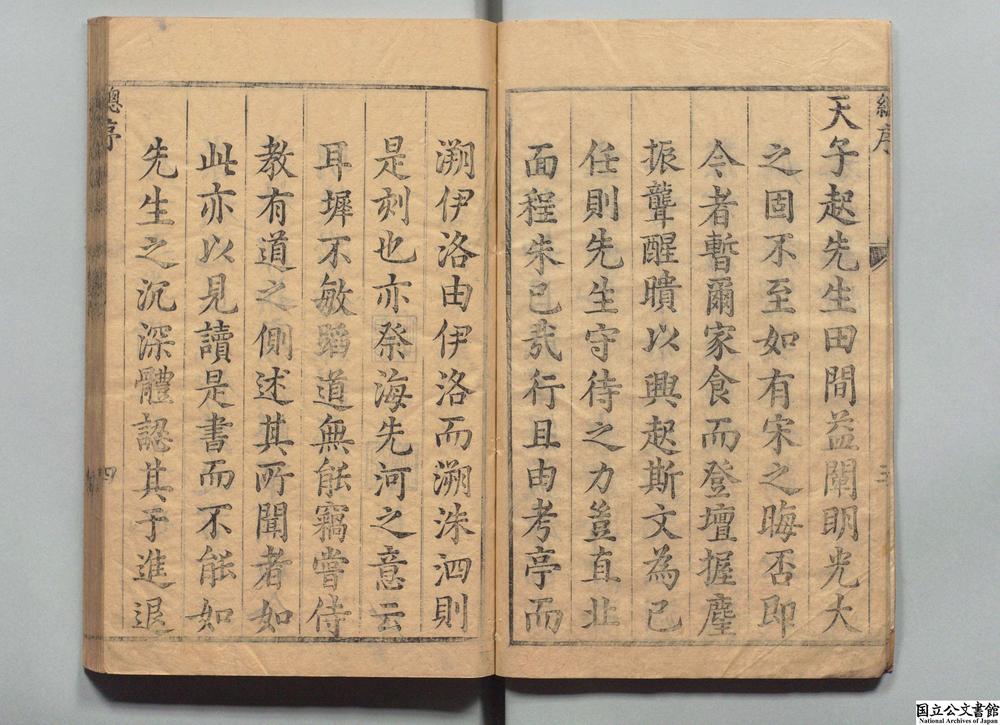 總序
天子起先生田間益闡明光大
之固不至如有宋之晦否即
今者暫爾家食而登壇握麈
振聾醒瞶以興起斯文為己
任則先生守待之力豈直北
面程朱已㢤行且由考亭而
溯伊洛由伊洛而溯洙泗則
是刻也亦祭海先河之意云
耳墀不敏蹈道無能竊嘗侍
教有道之側述其所聞者如
此亦以見讀是書而不能如
先生之沉深體認其于進退
總序
四
国立公文書館
National Archives of Japan